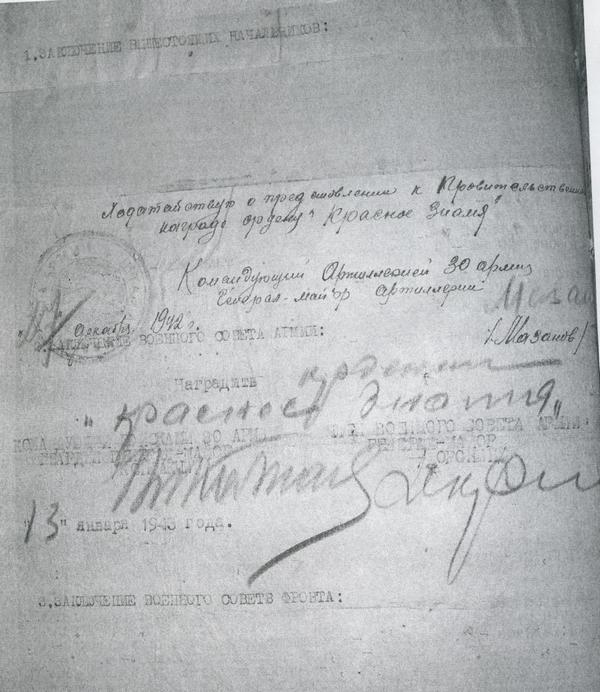 1.ЗАКЛЮЧЕНИЕ ВЫШЕСТОЯЩИХ НАЧАЛЬНИКОВ:
Ходатайствую о предстовлении к Провительствен
награде ордену "Красное Знамя"
Командующий Артиллерией 30 армии
Генерал-майор артиллерии
Мазан
/Мазанов/
декабрь 1942 г.
ЗАКЛЮЧЕНИЕ ВОЕННОГО СОВЕТА АРМИИ:
Наградить орденом
"Красное Знамя"
КОМАНДУЮЩИЙ ВОЙСКАМИ 30 АРМ
ЧЛЕН ВОЕННОГО СОВЕТА АРМИИ
ГВАРДИИ
ГЕНЕРАЛ-МАЙОР
"13" января 1943 года.
3.ЗАКЛЮЧЕНИЕ ВОЕННОГО СОВЕТВ ФРОНТА: